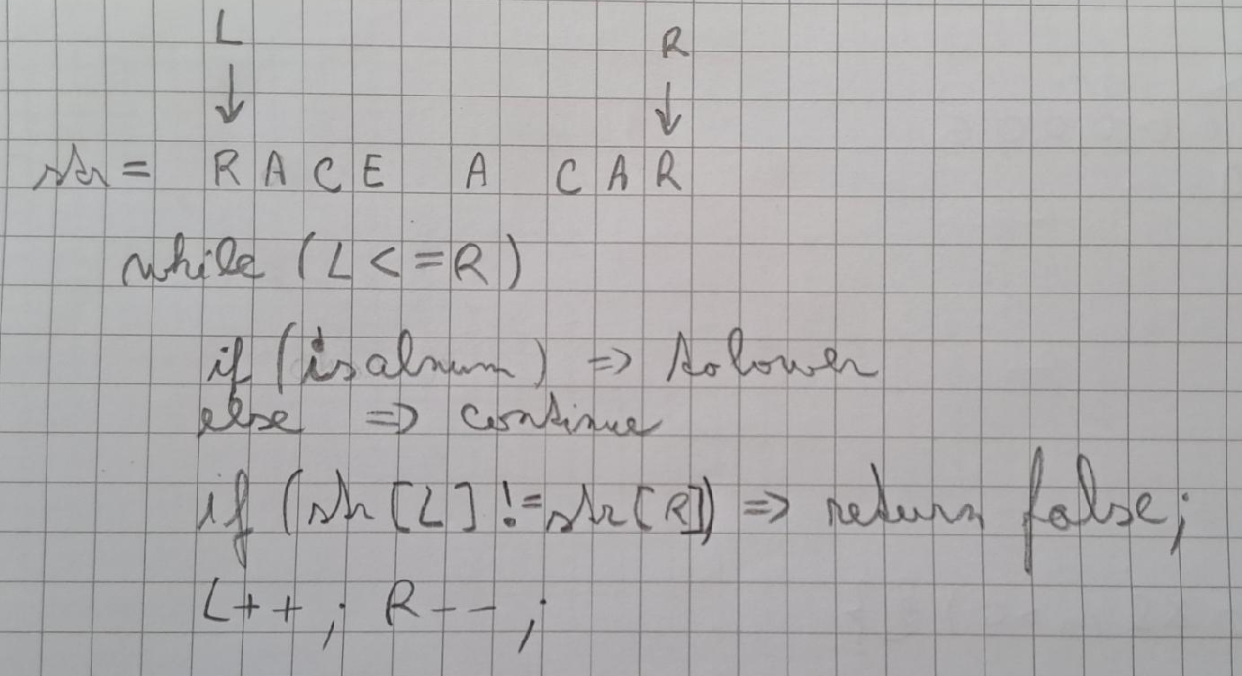 L R
str = R A C E A C A R
while (L <= R)
if (isalnum) => tolower
else => continue
if (str[L] != str[R]) => return false;
L++; R--;